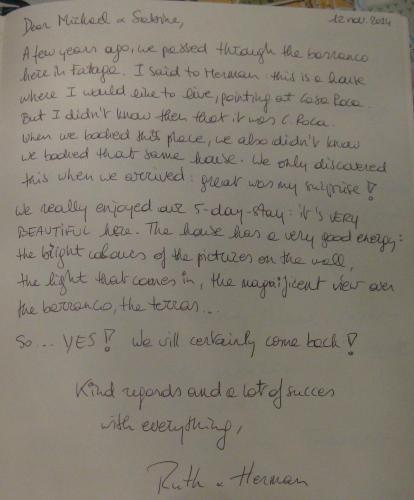 Dear Michael & Sabrine,
12 nov. 2014
A few years ago, we passed through the barranco
here in Fataga. I said to Herman: this is a house
where I would like to live, pointing at Casa Roca.
But I didn't know then that it was C Roca.
When we booked this place, we also didn't know
we booked that same house. We only discovered
this when we arrived: great was my surprise!
We really enjoyed our 5-day-stay: it's VERY
BEAUTIFUL here. The house has a very good energy:
the bright colours of the pictures on the wall,
the light that comes in, the magnificent view over
the barranco, the terras...
So... YES! We will certainly come back!
Kind regards and a lot of succes
with everything,
Ruth & Herman